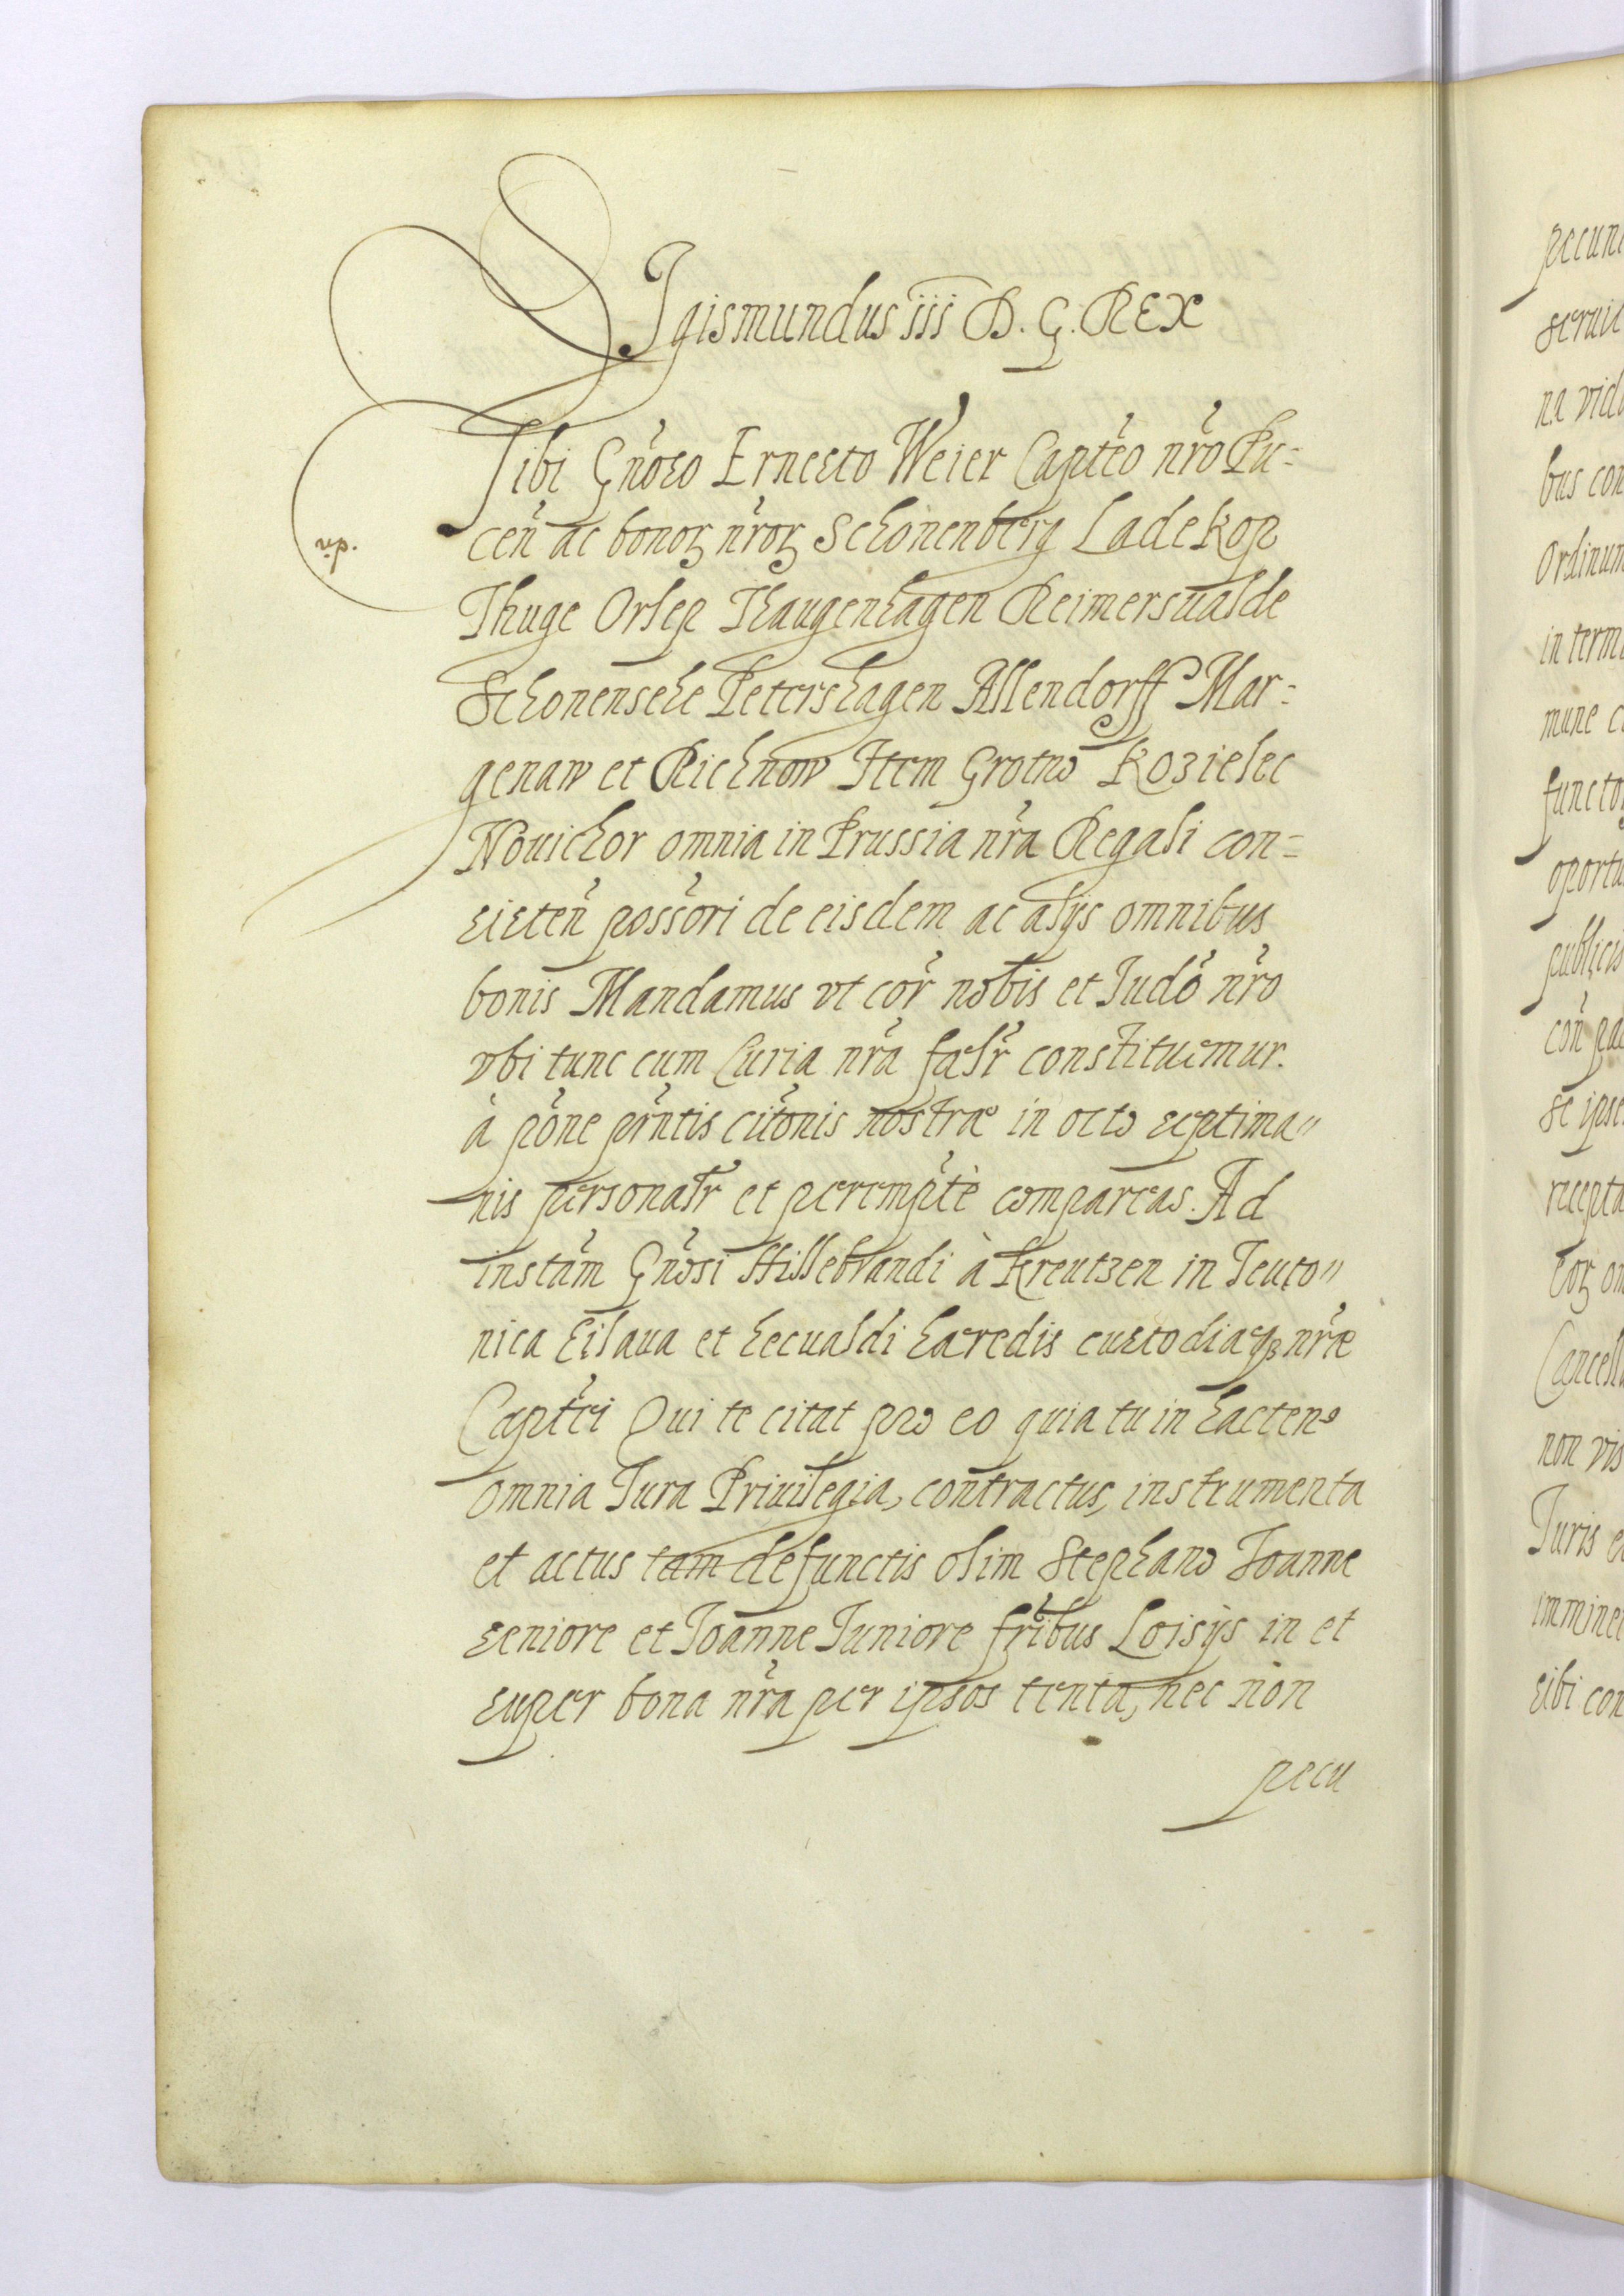 SIgismundus iii D. G. REX
Tibi Gn̄oso Ernesto Weier Capt̄eo nr̄o Pu-
cen̄ ac bonoꝝ nr̄oꝝ Schonenberg Ladekop
Thuge Orlep Thaugenhagen Reimersualde
Schonensehe Petershagen Allendorff Mar-
genaw et Richnow Item Grotno Kozielec
Nouichor omnia in Prussia nr̄a Regali con-
sisten̄ poss̄ori de eisdem ac alijs omnibus
bonis Mandamus vt cor̄ nobis et Iudō nr̄o
vbi tunc cum Curia nr̄a fœlr̄ constituemur.
à pōne pn̄tis citōnis nostræ in octo septima"
nis personalr̄ et perempt̄è compareas. Ad
instam̄ Gn̄osi Hillebrandi à Kreutzen in Teuto"
nica Eilaua et hecualdi hæredis custodiæqꝫ nr̄æ
Capt̄ei Qui te citat pro eo quia tu in hacten9
omnia Iura Priuilegia, contractus, instrumenta
et actus tam defunctis olim Stephano Ioanne
seniore et Ioanne Iuniore fr̄ibus Loisijs in et
super bona nr̄a per ipsos tenta, nec non
pecu
pecun
seruit
na vid
bus con
Ordinum
in term
mune c
functo
oportu
publicis
con̄ pa
se ipse
recepta
eoꝝ om
Cancell
non vis
Iuris e
imminet
sibi con